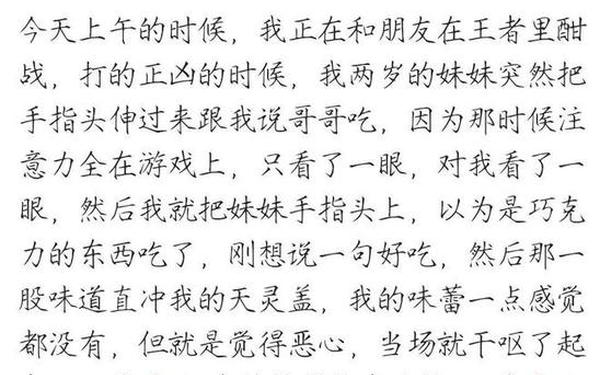 今天上午的时候，我正在和朋友在王者里酣
战，打的正凶的时候，我两岁的妹妹突然把
手指头伸过来跟我说哥哥吃，因为那时候注
意力全在游戏上，只看了一眼，对我看了一
眼，然后我就把妹妹手指头上，以为是巧克
力的东西吃了，刚想说一句好吃，然后那一
股味道直冲我的天灵盖，我的味蕾一点感觉
都没有，但就是觉得恶心，当场就干呕了起